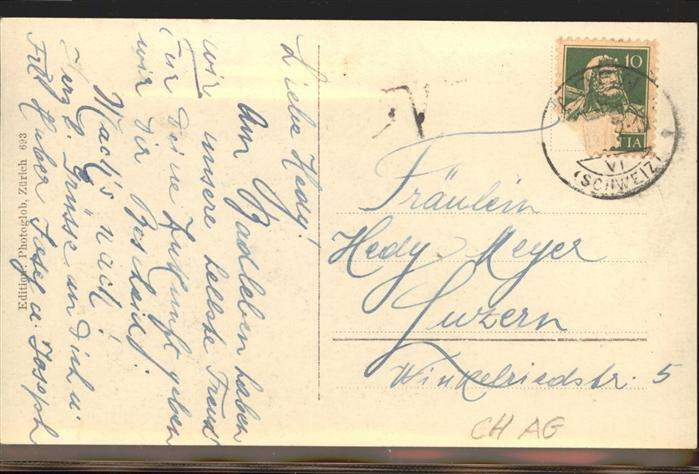 Liebe Hedy!
Am Badleben haben
wir unsere hellste Freud
Für Deine Zukunft geben
wir Dir Bescheid;
Mach's nach!
Herzl. Grüsse an Dich u.
Frl. Huber Josef u. Joseph
Edition Photoglob, Zürich 693
10
IA
VI
(SCHWEIZ)
Fräulein
Hedy Meyer
Luzern
Winkelriedstr. 5
CH AG